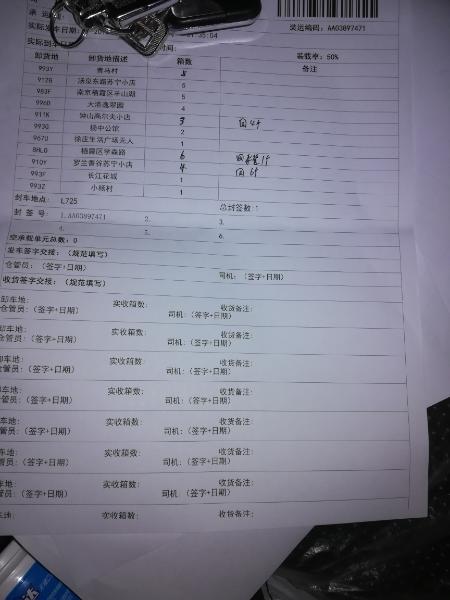 承运
发运编码: AA03897471
实际发车日期:
21:35:04
实际到
时间:
装载率: 50%
卸货地 卸货地描述 箱数 备注
993Y 青马村
912B 汤泉东路苏宁小店 5
983F 南京栖霞区平山湖 5
996D 大浦逸翠园 4
911K 钟山高尔夫小店 3 回4个
993G 杨中公馆 2
967U 徐庄生活广场无人 1
8HL0 栖霞区学森路 6
910Y 罗兰香谷苏宁小店 4 回6个
993F 长江花城 1
993Z 小杨村 1
封车地点: L725 总封签数:
封签号: 1.AA03897471 2. 3.
4. 5. 6.
空承载单元总数: 0
发车签字交接: (规范填写)
仓管员: (签字+日期) 司机: (签字+日期)
收货签字交接: (规范填写)
卸车地: 实收箱数: 收货备注:
仓管员: (签字+日期) 司机: (签字+日期)
卸车地: 实收箱数: 收货备注:
仓管员: (签字+日期) 司机: (签字+日期)
卸车地: 实收箱数: 收货备注:
仓管员: (签字+日期) 司机: (签字+日期)
车地: 实收箱数: 收货备注:
管员: (签字+日期) 司机: (签字+日期)
车地: 实收箱数: 收货备注:
管员: (签字+日期) 司机: (签字+日期)
车地: 实收箱数: 收货备注:
管员: (签字+日期) 司机: (签字+日期)
车地: 实收箱数: 收货备注:
管员: (签字+日期) 司机: (签字+日期)
车地: 实收箱数: 收货备注: